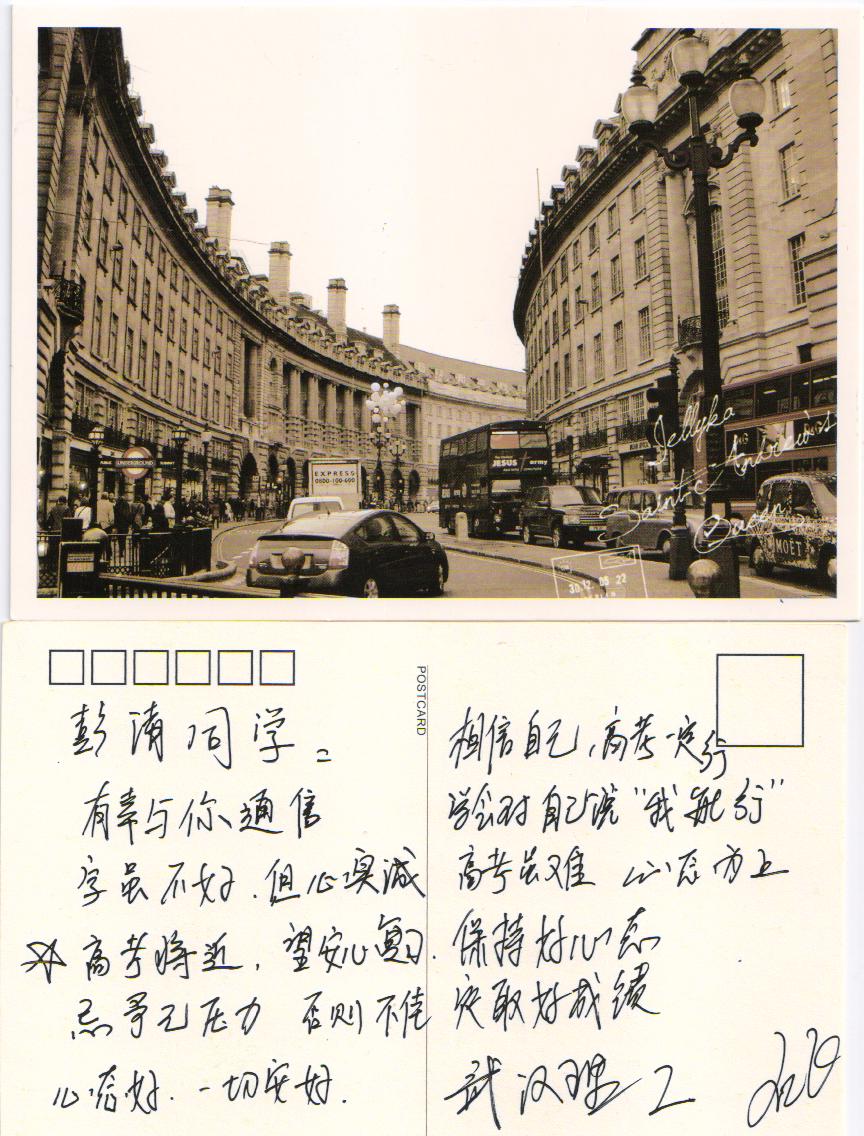 PUBLIC
UNDERGROUND
SUBWAY
EXPRESS
0800-100-600
JESUS
army
MOËT
Jellyka
Saint-Andrew's
Queen
30.12.06 22
POSTCARD
彭清同学:
有幸与你通信
字虽不好.但心真诚
高考将近,望安心复习.
忌予己压力 否则不佳
心态好.一切安好.
相信自己,高考一定行
学会对自己说“我能行”
高考虽难 心态为上
保持好心态
定取好成绩
武汉理工